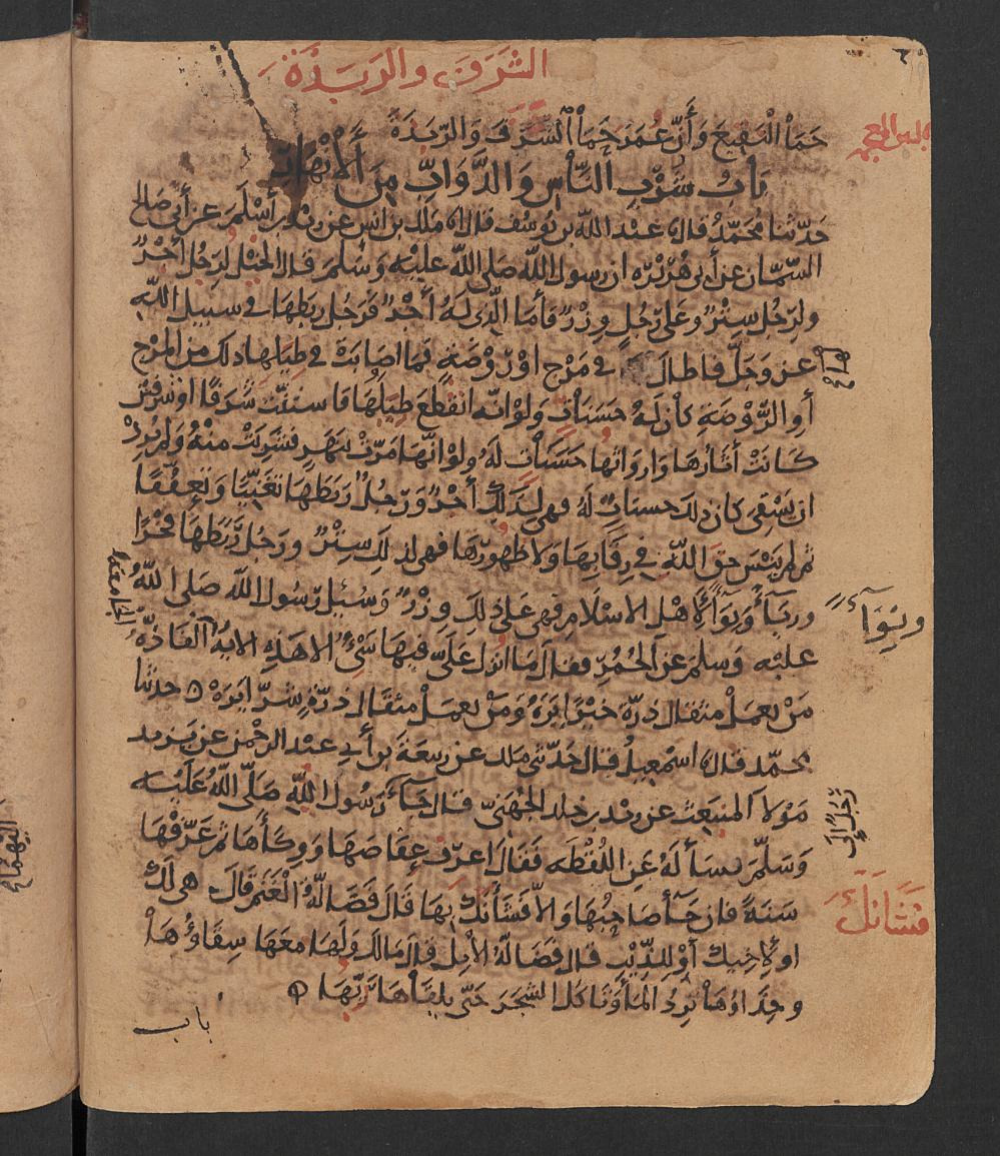 الشرف والربذة
حَمَا النَّقِيعَ وَأَنَّ عُمَرَ حَمَا الشَّرَفَ وَالرَّبَذَةَ
بَابُ شُرْبِ النَّاسِ وَالدَّوَابِّ مِنَ الْأَنْهَارِ
حَدّثنا مُحَمَّدٌ قال عَبْد اللَّه بن يُوسُف قال ملك بن انس عن زيد بن أَسْلَمَ عن أبي صَالح
السَّمّان عن أبي هُرَيْرَه ان رسول اللَّه صَلى اللَّه عليْه وَسَلمَ قال الخيْل لِرَجُل أَجْرٌ
ولِرَجُل سِتْرٌ وعَلى رَجُلٍ وِزْرٌ فَأمَا الَّذِى لَهُ أَجْرٌ فَرَجُل رَبطهَا في سَبيل اللَّهِ
عز وَجَلَّ فاطالَ في مَرْج اوْ رَوْضَةٍ فمَا اصَابَتْ في طِيَلها ذلك من المرْج
أوِ الرَّوْضَةِ كانَ لَهُ حَسَنَاتٍ وَلوْ انّه انقَطَعَ طِيَلُهَا فاستنّت شَرَفًا اوْ شرفيْن
كَانَتْ أثَارُهَا وَارواثها حَسَنَاتٍ لَهُ ولوْ انَّهَا مَرّتْ بِنَهَرٍ فشَرِبَتْ مِنْهُ وَلم يُرِدْ
ان يَسْقِى كان ذلك حسناتٍ لَهُ فهى لِذَلِكَ أجْرٌ وَرَجُلٌ رَبَطَهَا تَغَنِّيًا وَتعفّفًا
ثم لم يَنْسَ حَق اللَّهِ في رِقَابِهَا وَلا ظهُورِهَا فهى لذلِكَ سِتْرٌ ورَجُل رَبَطَهَا فَخْرًا
ورِيَاءً وَنِوَاءً لِأهْل الاسْلَامِ فهى عَلى ذلِكَ وِزْرٌ وَسُئِلَ رسُول اللَّه صَلى اللَّهُ
عليْه وَسلمَ عن الحُمُرِ فقال مَا انزل عَلَيَّ فيهَا شَيْءٌ الا هَذِهِ الايَةُ الفَاذَّه
مَنْ يعمَلْ مثقال ذَرَّةٍ خيْرًا يَرَهُ وَمَنْ يعمَلْ مثقَال ذرّةٍ شرًّا يَرَهُ ه حدثنا
محمّد قال اسمعيل قال حدّثني ملك عن ربيعَةَ بن أبي عبْد الرحْمن عن يَزيد
مَوْلَا المنبَعِث عن زيد بن خلد الجُهَنيّ قال جَاءَ رَسُول اللَّهِ صَلَّى اللَّهُ عَلَيْه
وَسَلَّمَ يسَألهُ عَنِ اللُّقَطَه فَقَالَ اعرِف عِفَاصَهَا وَوِكَاءَهَا ثُمَ عَرِّفْهَا
سَنَةً فان جَاءَ صَاحِبُهَا وَالاّ فَشَأنَكَ بهَا قَالَ فَضَالَّةُ الْغَنَمِ قَالَ هى لَكَ
او لِأخِيكَ أوْ للذِّئْبِ قال فَضَالَّة الإبلِ قال مَالك وَلَهَا معَهَا سِقَاؤُهَا
وحِذَاؤُهَا تَرِدُ المَاءَ وَتَاكل الشَّجَرَ حَتّى يلقَاهَا رَبّهَا ه
باب
لها
الجامعة
وَنِوَاءً
رَجُلٌ إلى
فشَانَكَ